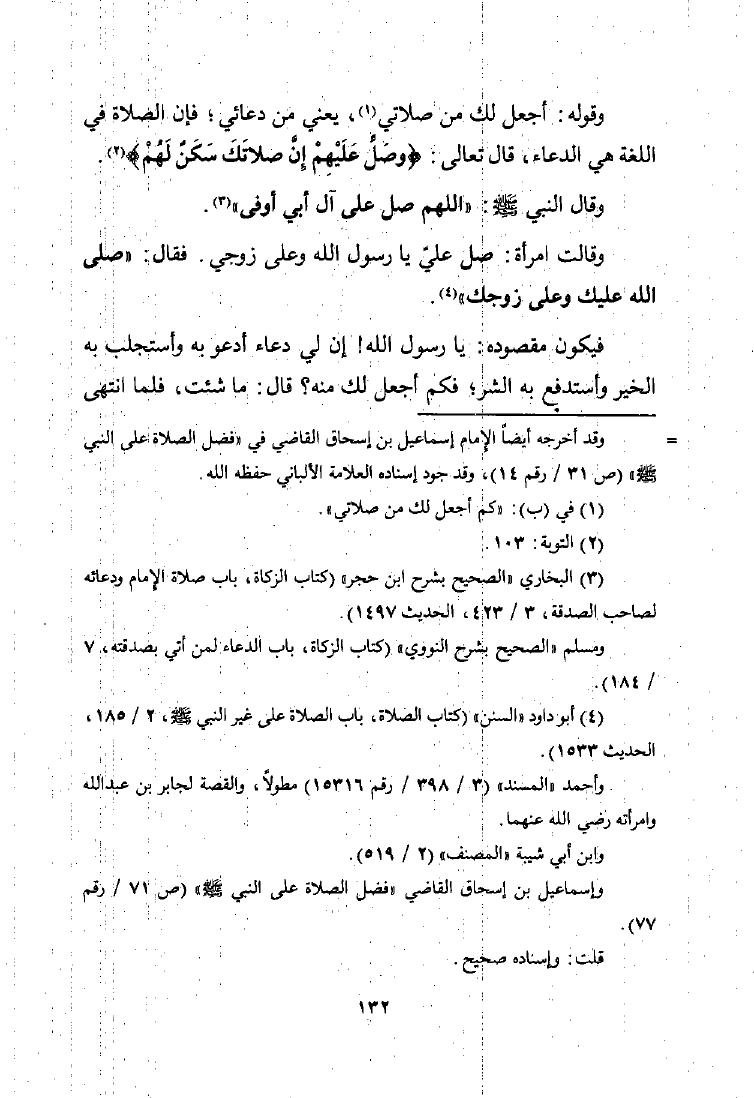 وقوله: أجعل لك من صلاتي(١)، يعني من دعائي؛ فإن الصلاة في
اللغة هي الدعاء، قال تعالى: ﴿وصَلِّ عَلَيهِمْ إِنَّ صلاتَكَ سَكَنٌ لَهُمْ﴾(٢).
وقال النبي ﷺ: «اللهم صل على آل أبي أوفى»(٣).
وقالت امرأة: صل عليّ يا رسول الله وعلى زوجي. فقال: «صلى
الله عليك وعلى زوجك»(٤).
فيكون مقصوده: يا رسول الله! إن لي دعاء أدعو به وأستجلب به
الخير وأستدفع به الشر؛ فكم أجعل لك منه؟ قال: ما شئت، فلما انتهى
= وقد أخرجه أيضاً الإمام إسماعيل بن إسحاق القاضي في «فضل الصلاة على النبي
ﷺ» (ص ٣١ / رقم ١٤)، وقد جود إسناده العلامة الألباني حفظه الله.
(١) في (ب): «كم أجعل لك من صلاتي».
(٢) التوبة: ١٠٣.
(٣) البخاري «الصحيح بشرح ابن حجر» (كتاب الزكاة، باب صلاة الإمام ودعائه
لصاحب الصدقة، ٣ / ٤٢٣، الحديث ١٤٩٧).
ومسلم «الصحيح بشرح النووي» (كتاب الزكاة، باب الدعاء لمن أتي بصدقته، ٧
/ ١٨٤).
(٤) أبو داود «السنن» (كتاب الصلاة، باب الصلاة على غير النبي ﷺ، ٢ / ١٨٥،
الحديث ١٥٣٣).
وأحمد «المسند» (٣ / ٣٩٨ / رقم ١٥٣١٦) مطولاً، والقصة لجابر بن عبدالله
وامرأته رضي الله عنهما.
وابن أبي شيبة «المصنف» (٢ / ٥١٩).
وإسماعيل بن إسحاق القاضي «فضل الصلاة على النبي ﷺ» (ص ٧١ / رقم
٧٧).
قلت: وإسناده صحيح.
١٣٢